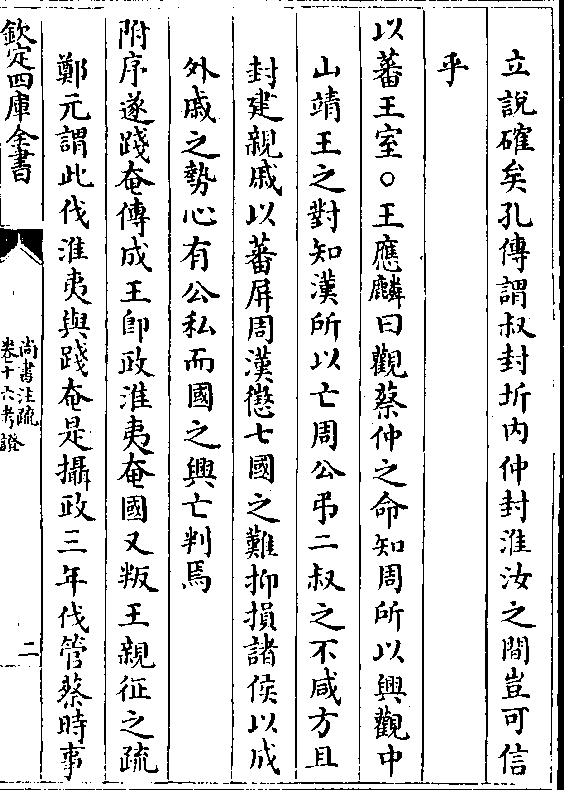 立說確矣孔傳謂叔封圻内仲封淮汝之間豈可信
乎
以蕃王室○王應麟曰觀蔡仲之命知周所以興觀中
山靖王之對知漢所以亡周公弔二叔之不咸方且
封建親戚以蕃屏周漢懲七國之難抑損諸侯以成
外戚之勢心有公私而國之興亡判焉
附序遂踐奄傳成王卽政淮夷奄國又叛王親征之疏
鄭元謂此伐淮夷與踐奄是攝政三年伐管蔡時事
欽定四庫全書
尚書注疏
卷十六考證
二